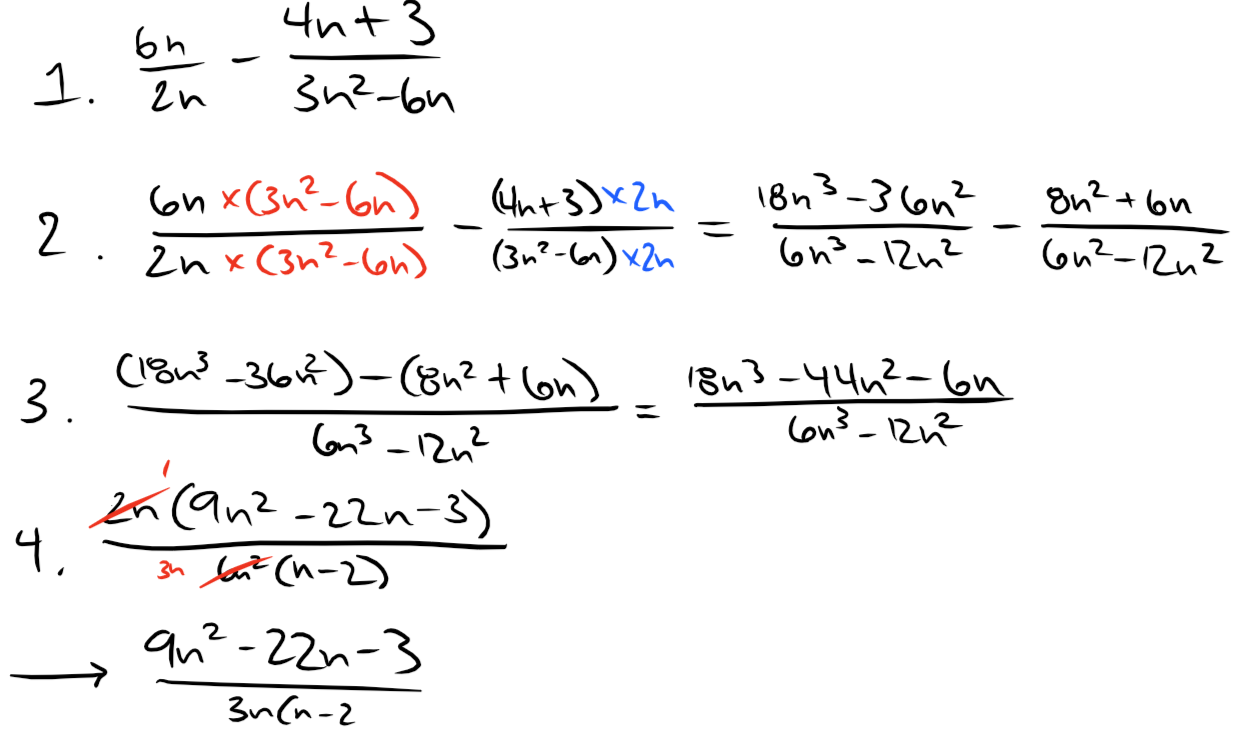 1. \frac{6n}{2n} - \frac{4n+3}{3n^2-6n}
2. \frac{6n \times (3n^2-6n)}{2n \times (3n^2-6n)} - \frac{(4n+3) \times 2n}{(3n^2-6n) \times 2n} = \frac{18n^3-36n^2}{6n^3-12n^2} - \frac{8n^2+6n}{6n^2-12n^2}
3. \frac{(18n^3-36n^2)-(8n^2+6n)}{6n^3-12n^2} = \frac{18n^3-44n^2-6n}{6n^3-12n^2}
4. \frac{\cancel{2n}^1 (9n^2-22n-3)}{3n \cancel{6n^2} (n-2)}
→ \frac{9n^2-22n-3}{3n(n-2}